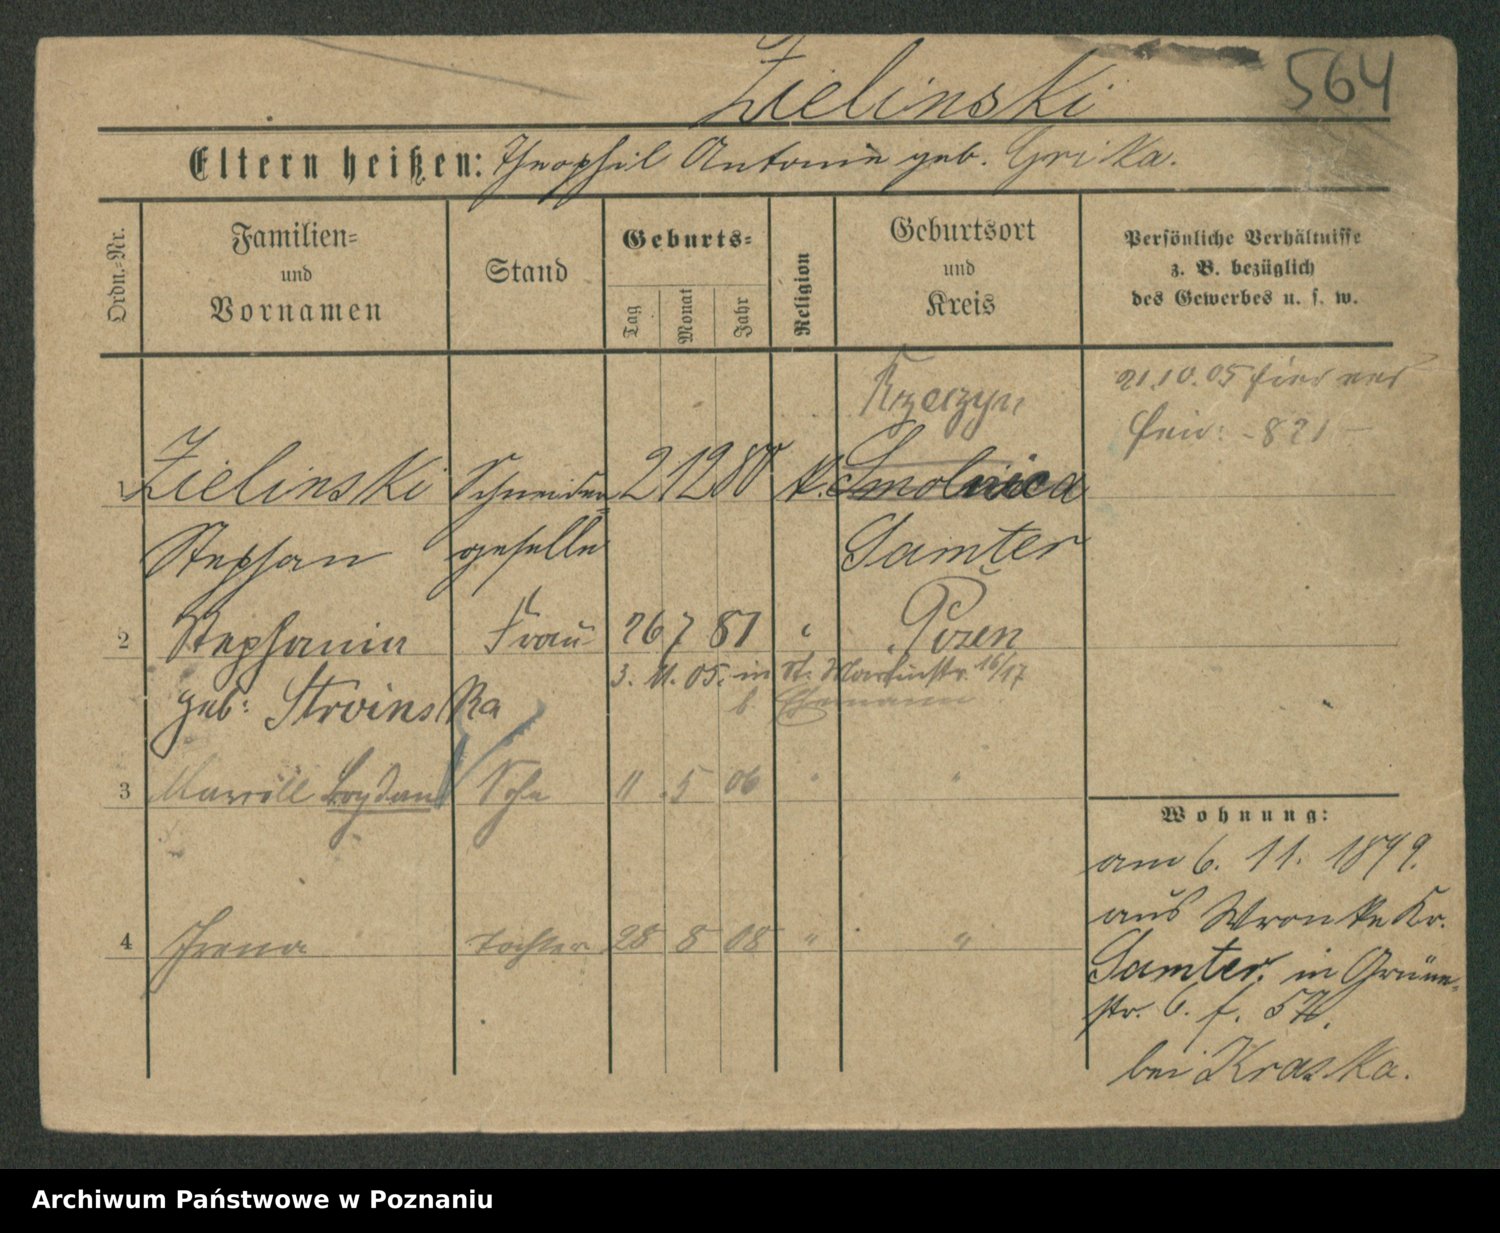 Zielinski
564
Eltern heißen: Theophil Antonie geb. Grikka.
Ordn.=Nr.
Familien=
und
Vornamen
Stand
Geburts=
Tag
Monat
Jahr
Religion
Geburtsort
und
Kreis
Persönliche Verhältnisse
z. B. bezüglich
des Gewerbes u. s. w.
21.10.05
- 821 -
1 Zielinski Schneider= 2 12 80 k. Smolnica
Stephan geselle Samter
2 Stephania Frau 26 7 81 " Posen
3. 11. 05. in St. Martinstr. 16/17
geb: Stroinska b. Ehemann
3 Bogdan Sohn 11 . 5 06 " "
4 Irena Tochter 28 8 08 " "
Wohnung:
am 6. 11. 1899.
aus Wronke Kr.
Samter. in Grüne=
str. 6.
bei Kraska.
Archiwum Państwowe w Poznaniu